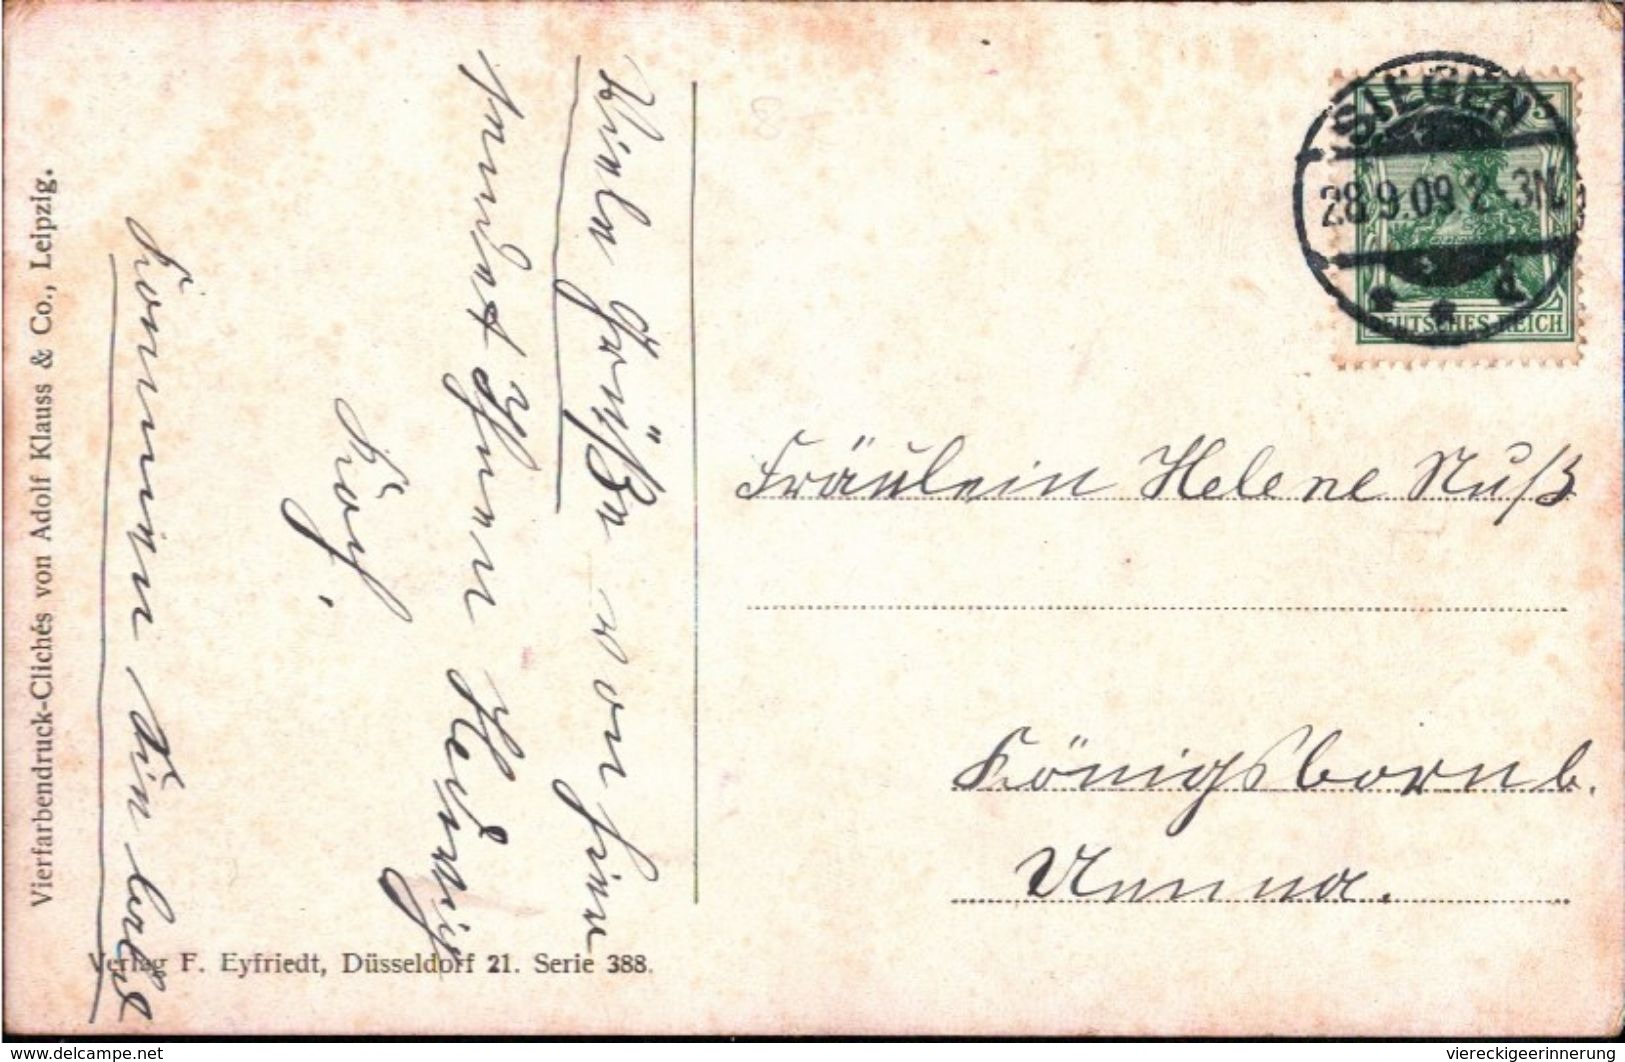 SIEGEN
28.9.09.2-3N.
DEUTSCHES REICH
Fräulein Helene Nuß
Königsborn b.
Unna.
Viele Grüße von hier
sendet Ihnen Hedwig
Kommen Sie bald
Vierfarbendruck-Clichés von Adolf Klauss & Co., Leipzig.
Verlag F. Eyfriedt, Düsseldorf 21. Serie 388.
www.delcampe.net
viereckigeerinnerung